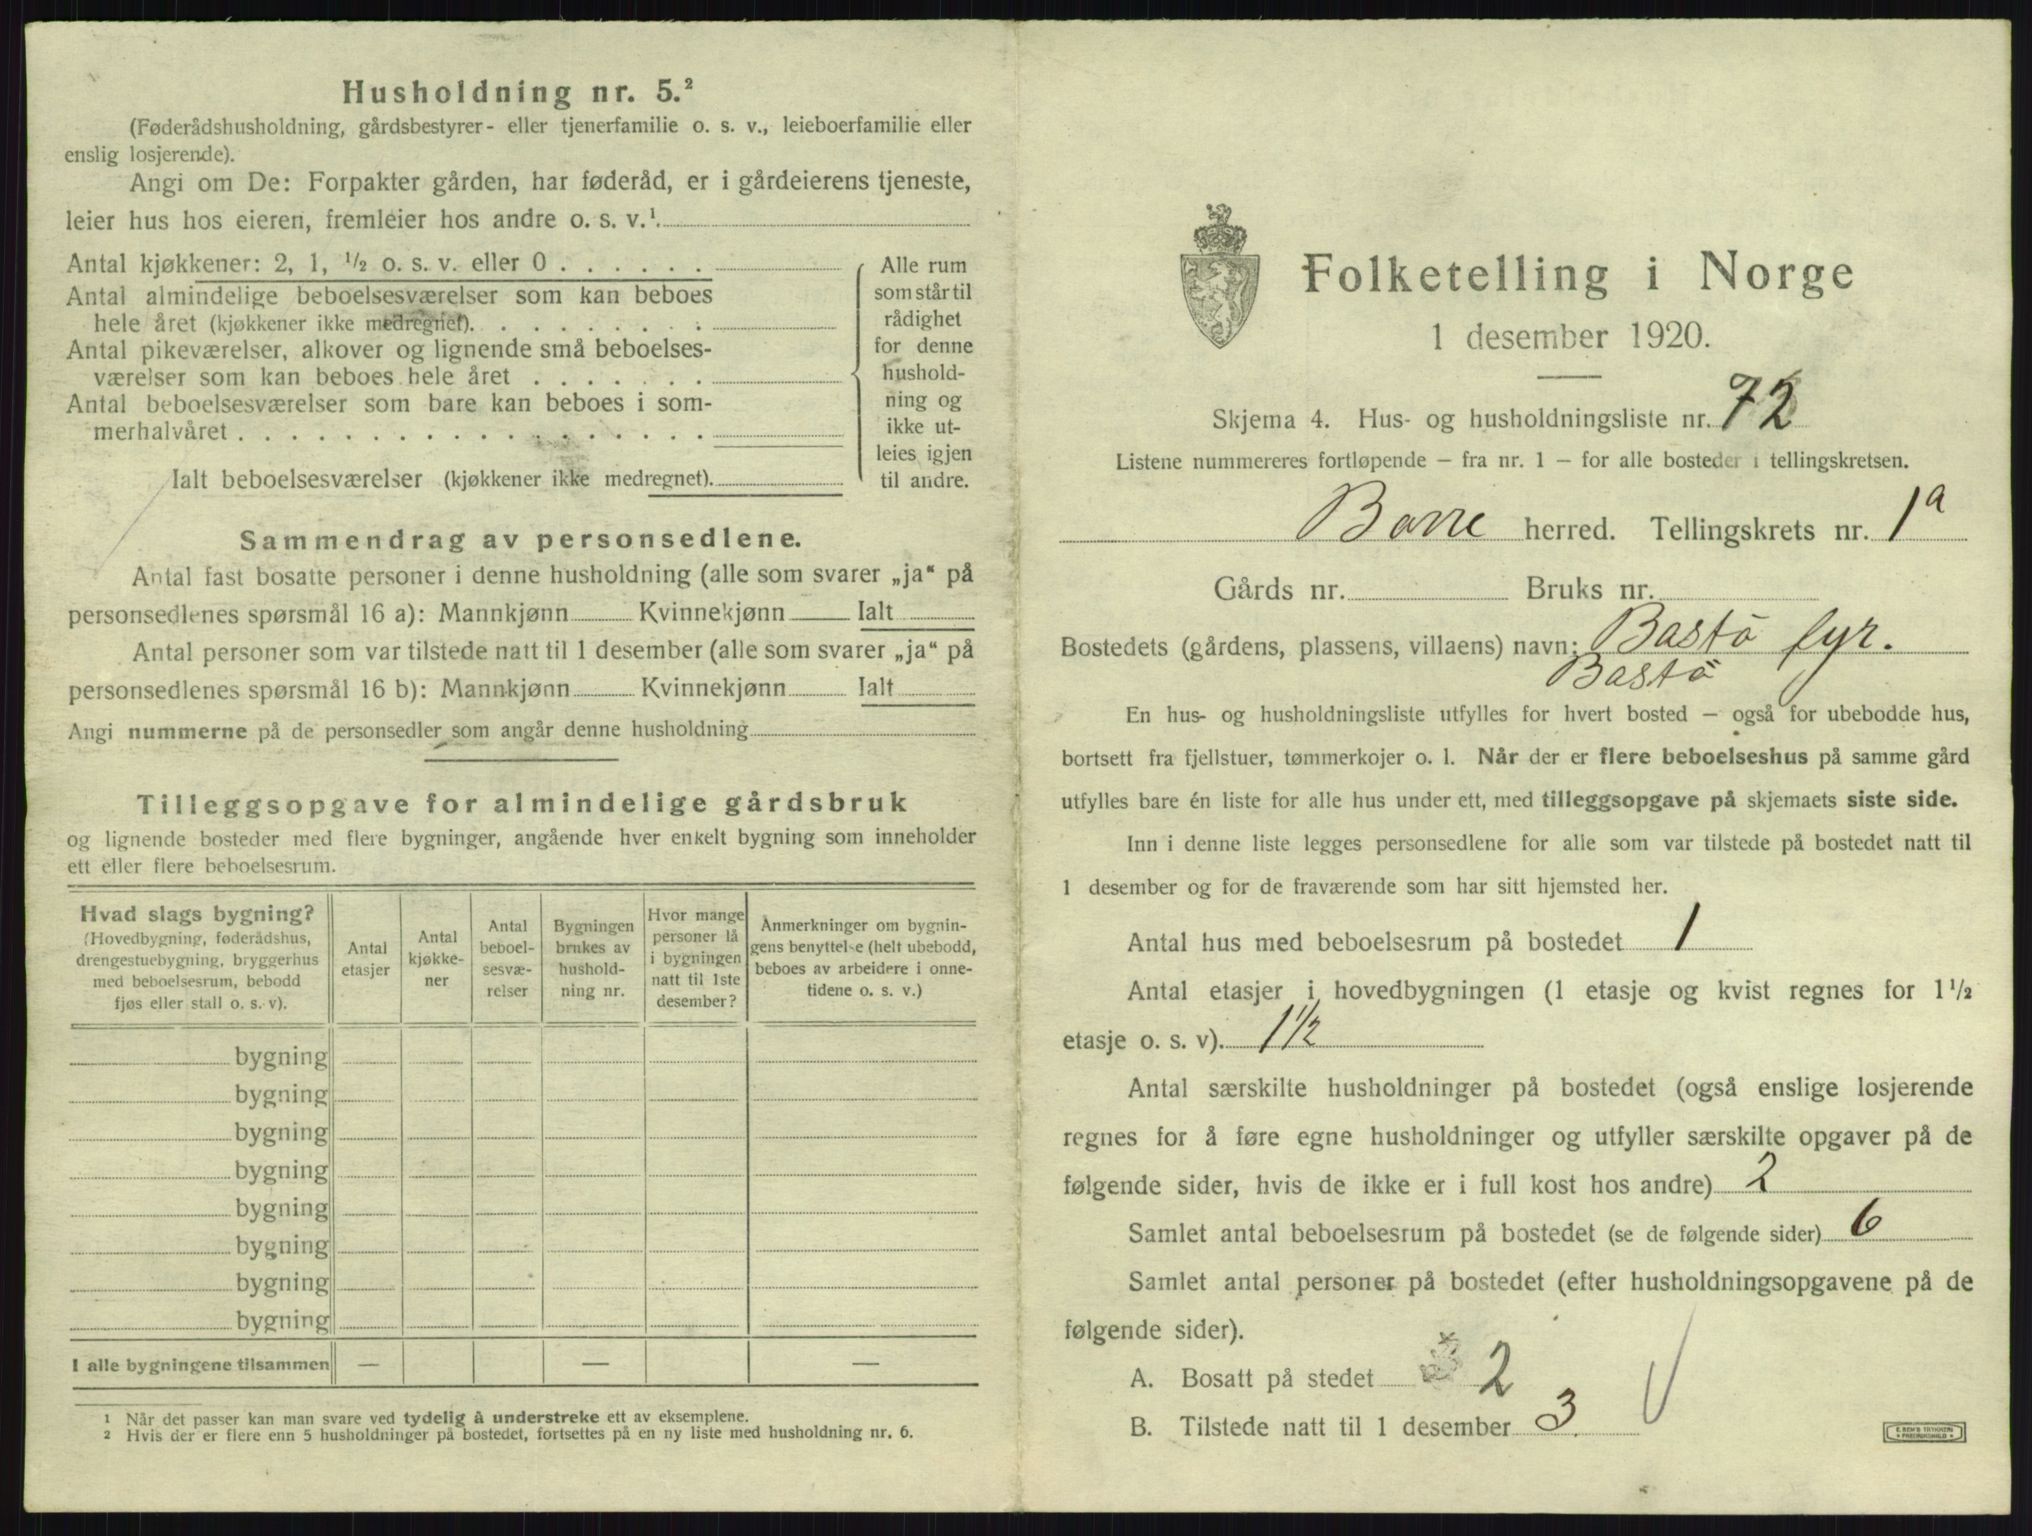 Husholdning nr. 5.²
(Føderådshusholdning, gårdsbestyrer- eller tjenerfamilie o. s. v., leieboerfamilie eller
enslig losjerende).
Angi om De: Forpakter gården, har føderåd, er i gårdeierens tjeneste,
leier hus hos eieren, fremleier hos andre o. s. v.¹
Antal kjøkkener: 2, 1, ½ o. s. v. eller 0 . . . . . .
Antal almindelige beboelsesværelser som kan beboes
hele året (kjøkkener ikke medregnet). . . . . . . . .
Antal pikeværelser, alkover og lignende små beboelses-
værelser som kan beboes hele året . . . . . . .
Antal beboelsesværelser som bare kan beboes i som-
merhalvåret . . . . . . . . . . . . . . . . . .
Ialt beboelsesværelser (kjøkkener ikke medregnet).
Alle rum
som står til
rådighet
for denne
hushold-
ning og
ikke ut-
leies igjen
til andre.
Sammendrag av personsedlene.
Antal fast bosatte personer i denne husholdning (alle som svarer „ja“ på
personsedlenes spørsmål 16 a): Mannkjønn Kvinnekjønn Ialt
Antal personer som var tilstede natt til 1 desember (alle som svarer „ja“ på
personsedlenes spørsmål 16 b): Mannkjønn Kvinnekjønn Ialt
Angi nummerne på de personsedler som angår denne husholdning
Tilleggsopgave for almindelige gårdsbruk
og lignende bosteder med flere bygninger, angående hver enkelt bygning som inneholder
ett eller flere beboelsesrum.
Hvad slags bygning?
(Hovedbygning, føderådshus,
drengestuebygning, bryggerhus
med beboelsesrum, bebodd
fjøs eller stall o. s. v).
Antal
etasjer
Antal
kjøkke-
ner
Antal
beboel-
sesvæ-
relser
Bygningen
brukes av
hushold-
ning nr.
Hvor mange
personer lå
i bygningen
natt til 1ste
desember?
Anmerkninger om bygnin-
gens benyttelse (helt ubebodd,
beboes av arbeidere i onne-
tidene o. s. v.)
bygning
bygning
bygning
bygning
bygning
bygning
bygning
bygning
I alle bygningene tilsammen — — —
1 Når det passer kan man svare ved tydelig å understreke ett av eksemplene.
2 Hvis der er flere enn 5 husholdninger på bostedet, fortsettes på en ny liste med husholdning nr. 6.
Folketelling i Norge
1 desember 1920.
Skjema 4. Hus- og husholdningsliste nr. 72
Listene nummereres fortløpende – fra nr. 1 – for alle bosteder i tellingskretsen.
Borre herred. Tellingskrets nr. 1a
Gårds nr. Bruks nr.
Bostedets (gårdens, plassens, villaens) navn: Bastö fyr.
Bastö
En hus- og husholdningsliste utfylles for hvert bosted – også for ubebodde hus,
bortsett fra fjellstuer, tømmerkojer o. l. Når der er flere beboelseshus på samme gård
utfylles bare én liste for alle hus under ett, med tilleggsopgave på skjemaets siste side.
Inn i denne liste legges personsedlene for alle som var tilstede på bostedet natt til
1 desember og for de fraværende som har sitt hjemsted her.
Antal hus med beboelsesrum på bostedet 1
Antal etasjer i hovedbygningen (1 etasje og kvist regnes for 1½
etasje o. s. v). 1½
Antal særskilte husholdninger på bostedet (også enslige losjerende
regnes for å føre egne husholdninger og utfyller særskilte opgaver på de
følgende sider, hvis de ikke er i full kost hos andre) 2
Samlet antal beboelsesrum på bostedet (se de følgende sider) 6
Samlet antal personer på bostedet (efter husholdningsopgavene på de
følgende sider).
A. Bosatt på stedet 2
B. Tilstede natt til 1 desember 3